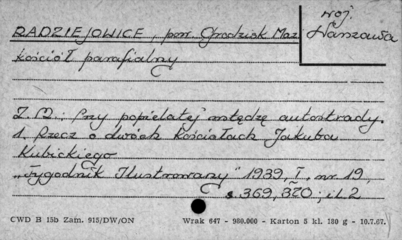 RADZIEJOWICE, pow. Grodzisk Maz
woj. Warszawa
kościół parafialny
Z. O.: Przy popielatej wstędze autostrady.
1, Rzecz o dwóch kościołach Jakuba
Kubickiego
„Tygodnik Ilustrowany" 1939, I, nr 19,
s. 369, 370; il. 2
CWD B 15b Zam. 915/DW/ON Wrak 647 - 980.000 - Karton 5 kl. 180 g - 10.7.67.